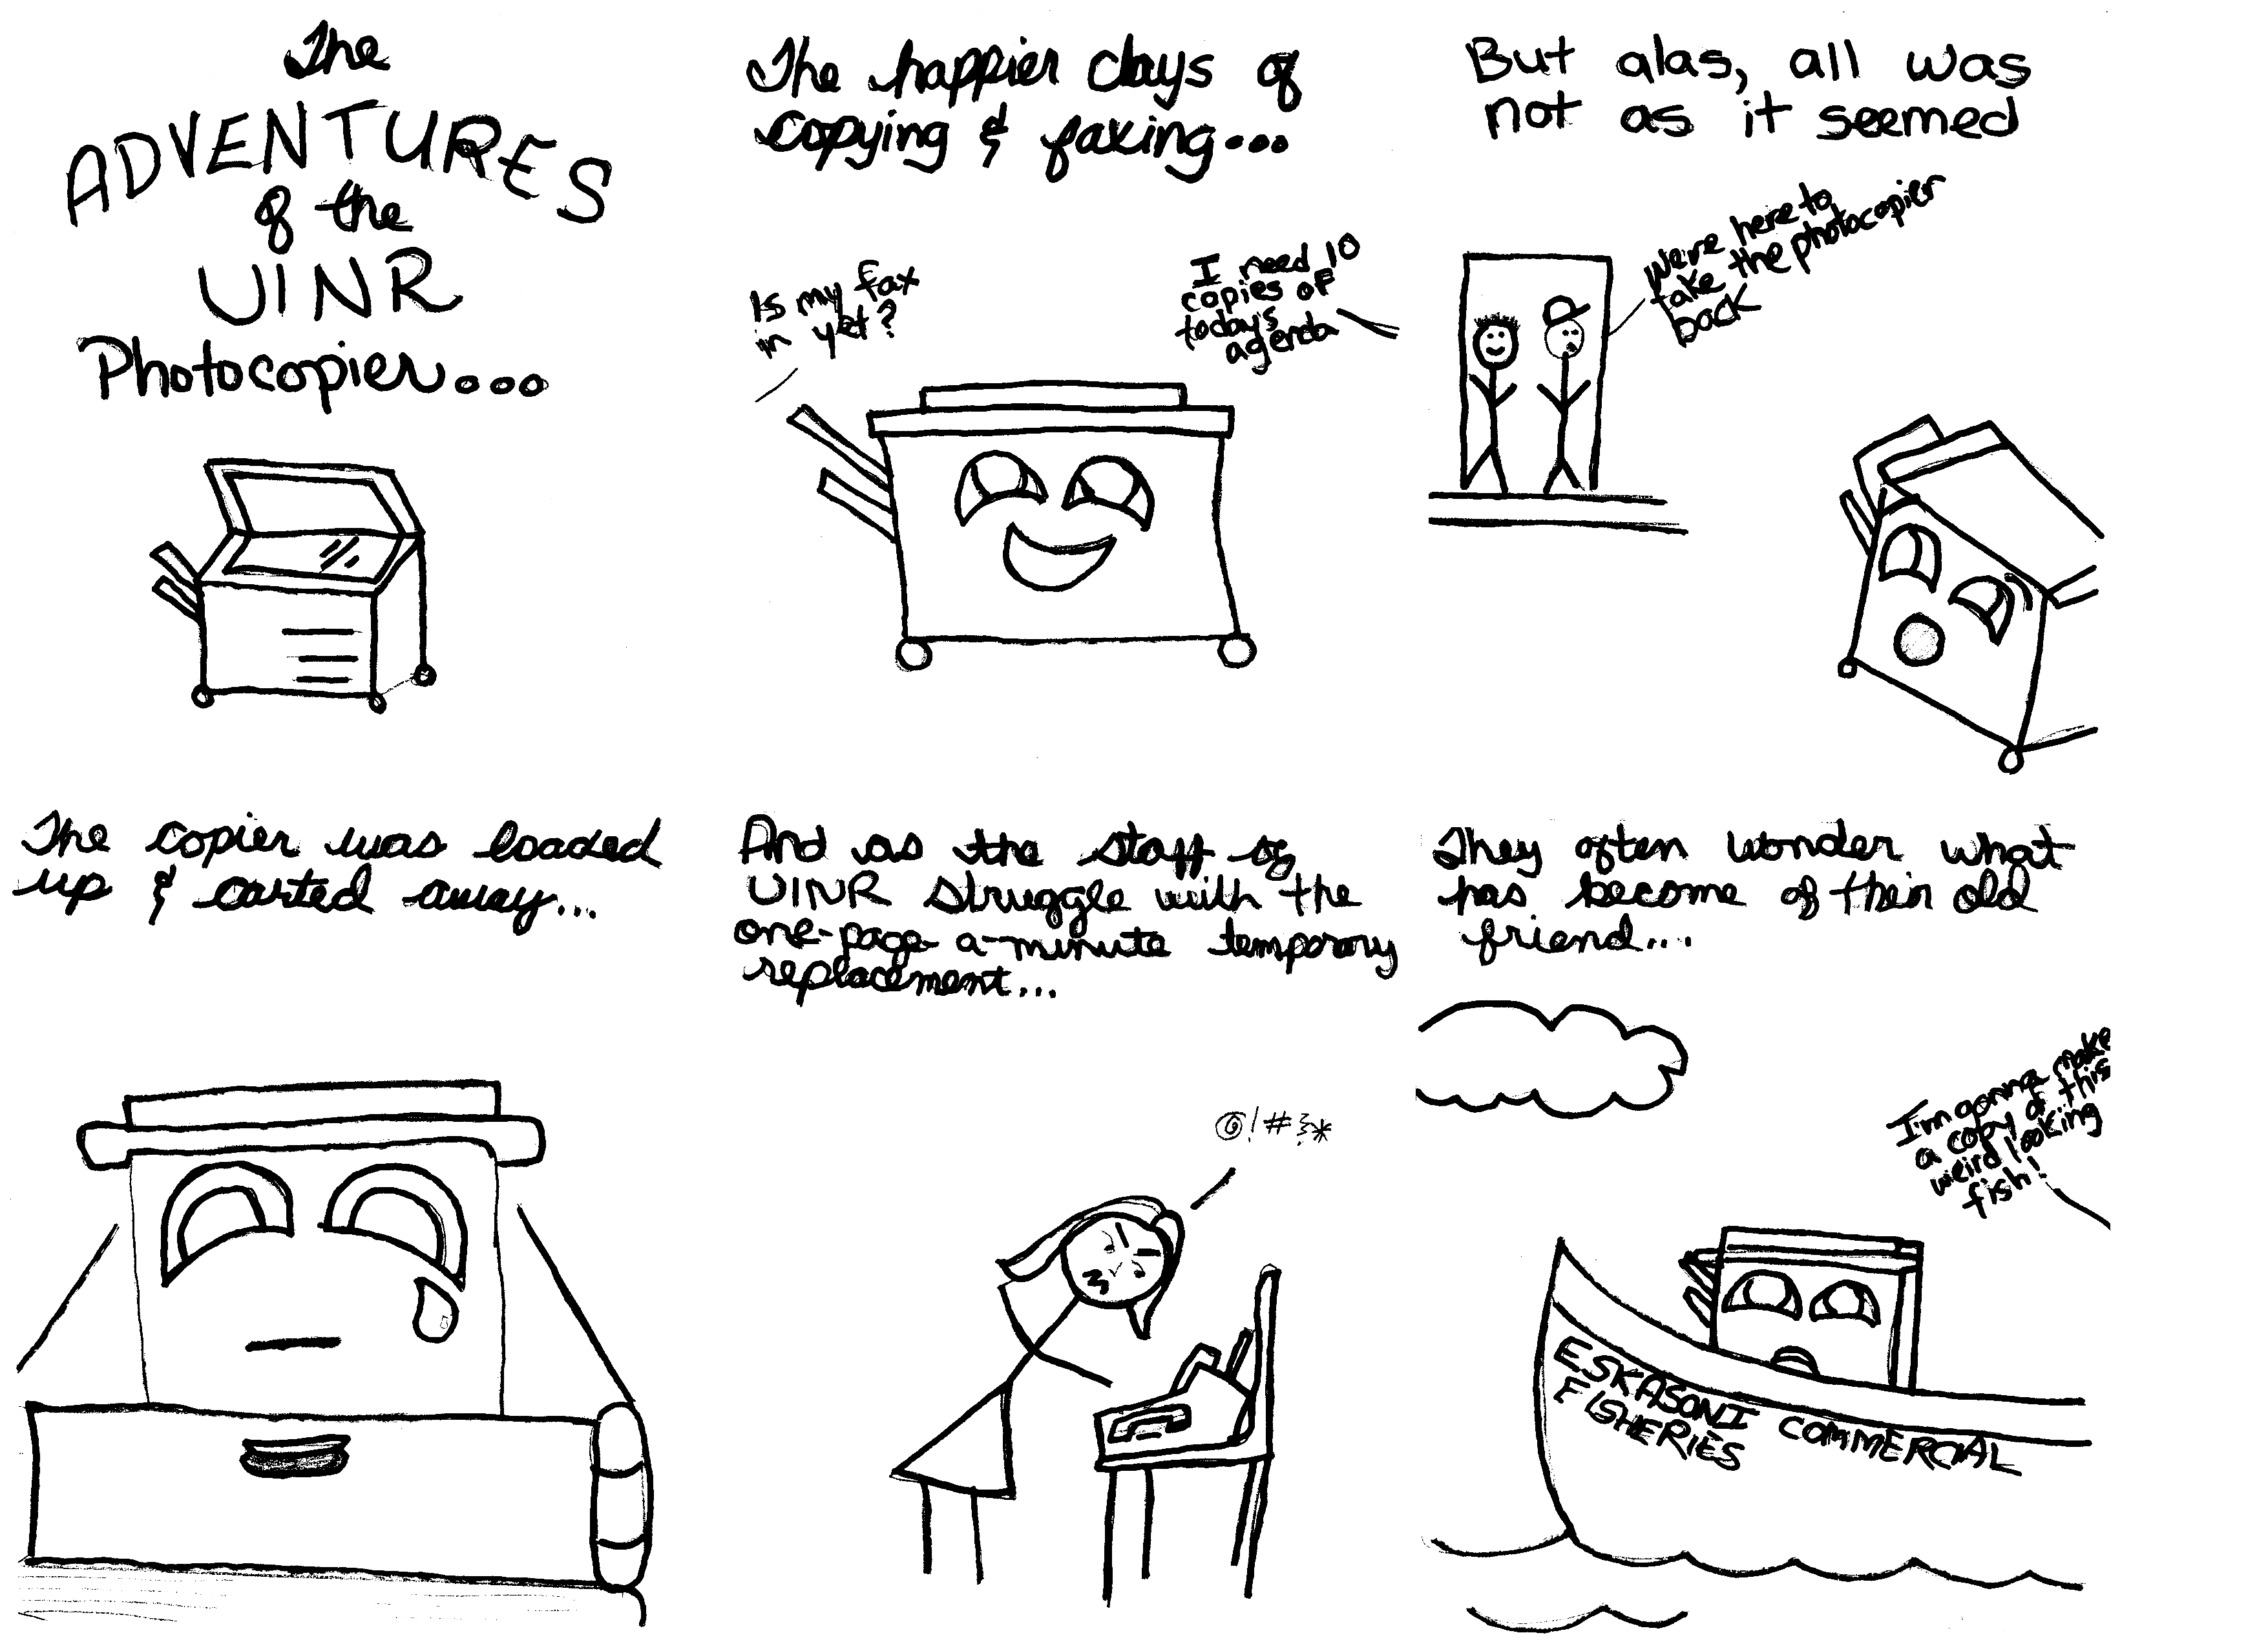 The
ADVENTURES
of the
UINR
Photocopier...
The happier days of
copying & faxing...
Is my fax
in yet?
I need 10
copies of
todays
agenda
But alas, all was
not as it seemed
We're here to
take the photocopier
back
The copier was loaded
up & carted away...
And as the staff of
UINR struggle with the
one-page-a-minute temporary
replacement...
@!#?*
They often wonder what
has become of their old
friend...
I'm gonna make
a copy of this
weird looking
fish!
ESKASONI COMMERCIAL
FISHERIES